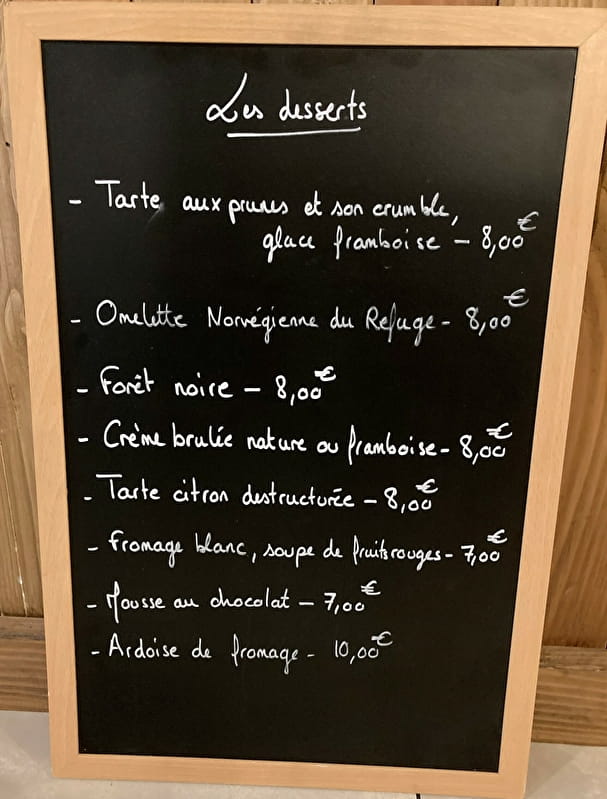 Les desserts
- Tarte aux prunes et son crumble,
glace framboise - 8,00€
- Omelette Norvégienne du Refuge - 8,00€
- Forêt noire - 8,00€
- Crème brulée nature ou framboise - 8,00€
- Tarte citron destructurée - 8,00€
- Fromage blanc, soupe de fruits rouges - 7,00€
- Mousse au chocolat - 7,00€
- Ardoise de fromage - 10,00€